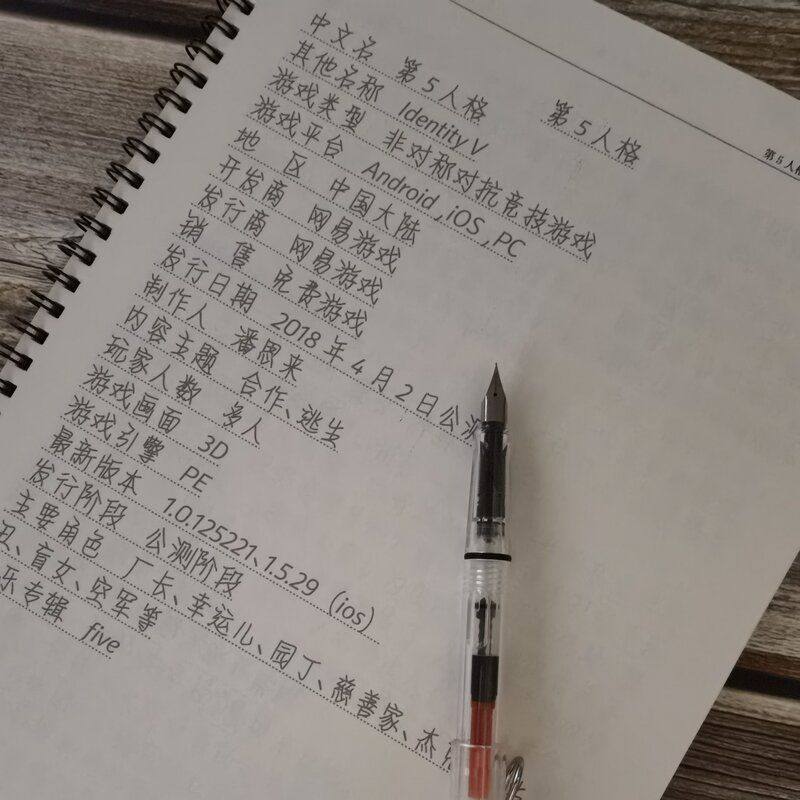 第5人格
第5人格
中文名 第5人格
其他名称 Identity V
游戏类型 非对称对抗竞技游戏
游戏平台 Android ,iOS ,PC
地 区 中国大陆
开发商 网易游戏
发行商 网易游戏
销 售 免费游戏
发行日期 2018年4月2日公测
制作人 潘恩来
内容主题 合作、逃生
玩家人数 多人
游戏画面 3D
游戏引擎 PE
最新版本 1.0.125221、1.5.29（ios）
发行阶段 公测阶段
主要角色 厂长、幸运儿、园丁、慈善家、杰
丑、盲女、空军等
乐专辑 five